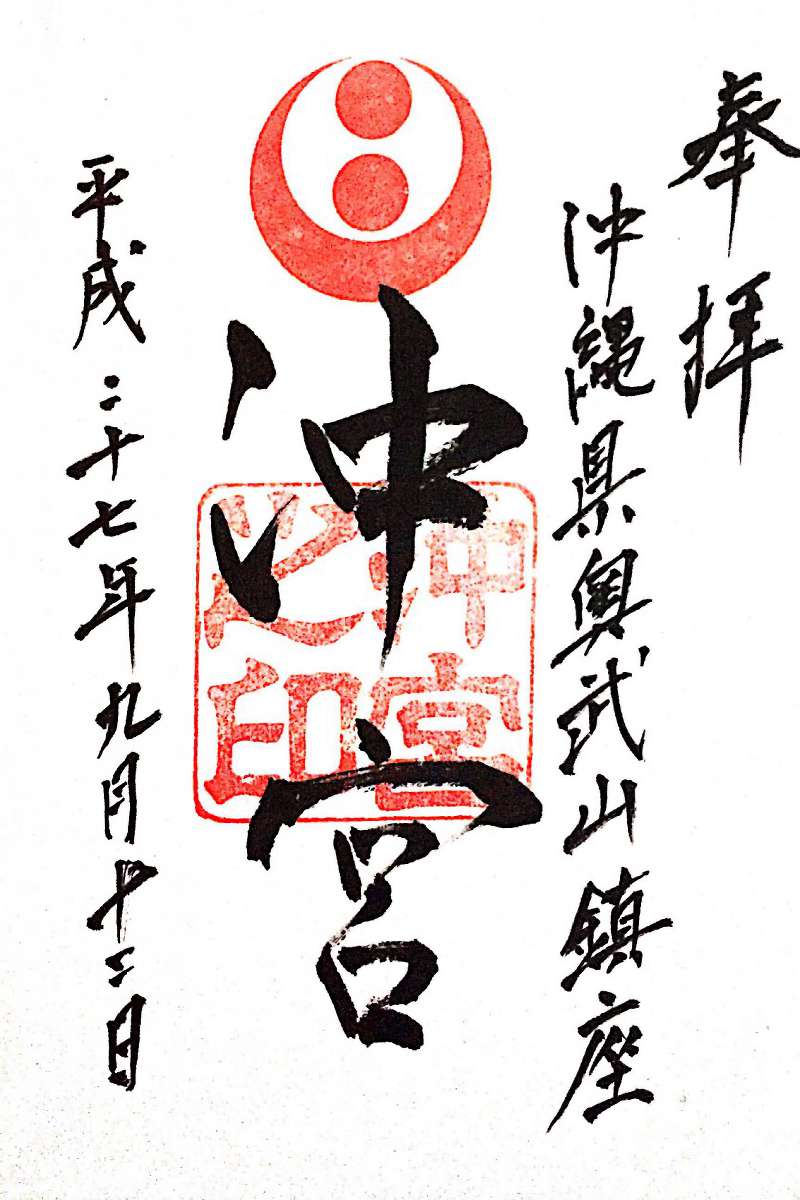 奉拝
沖縄県奥武山鎮座
沖宮
沖宮之印
平成二十七年九月十二日